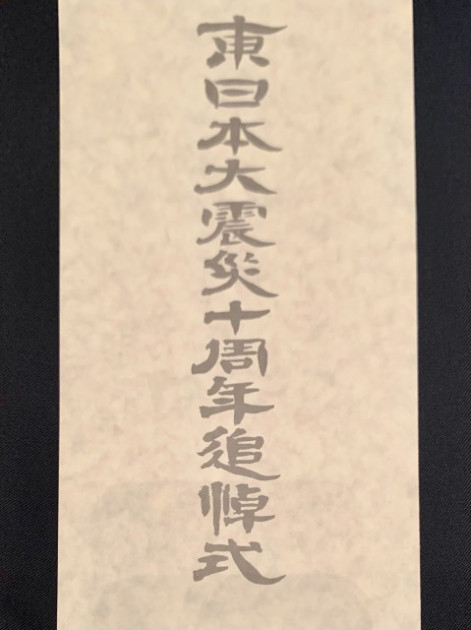 東日本大震災十周年追悼式